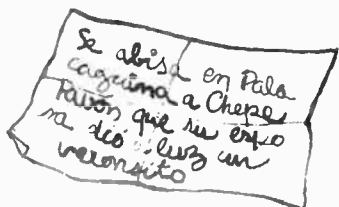 Se abisa en Palo
caguina a Chepe
Pavón que su espo
sa dió luz un
varonsito